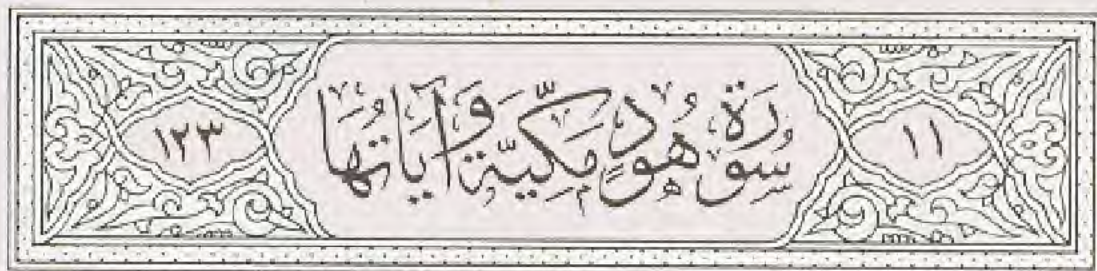 ١١ سُورَة هُودٍ مَكِّيَّة وَآيَاتُهَا ١٢٣